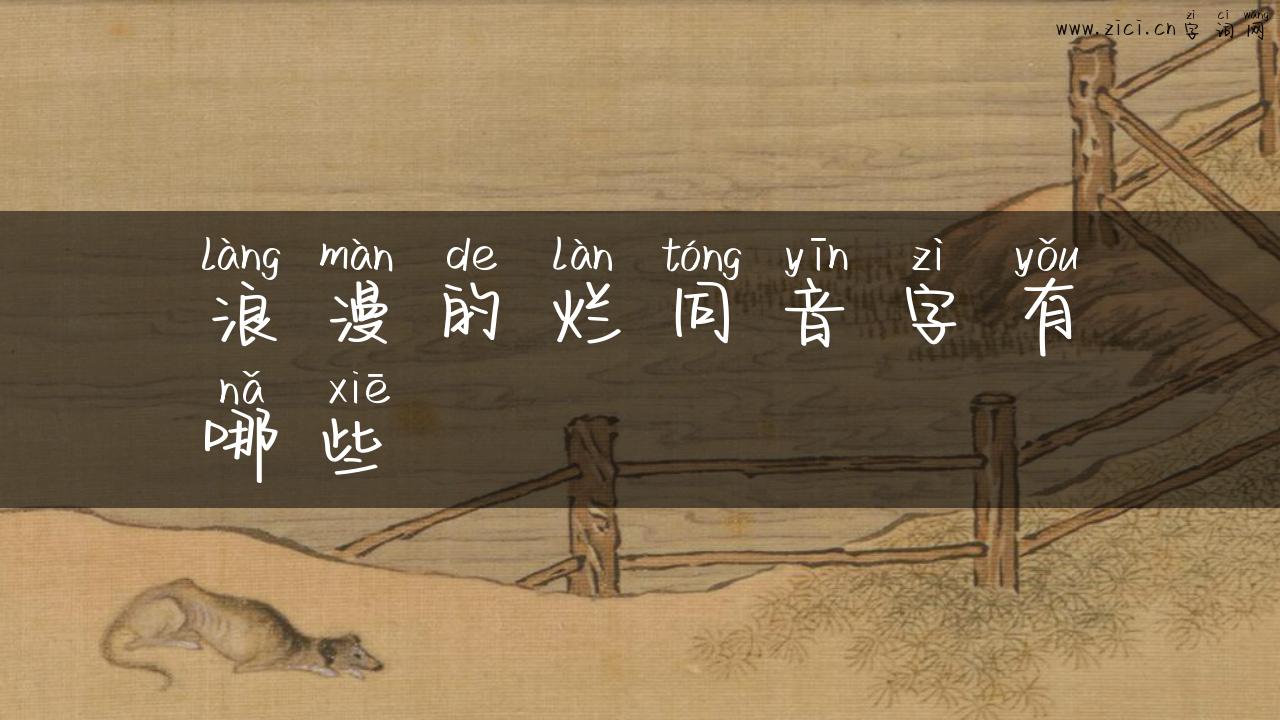 zì cí wǎng
www.zici.cn 字词网
làng màn de làn tóng yīn zì yǒu
浪漫的烂同音字有
nǎ xiē
哪些